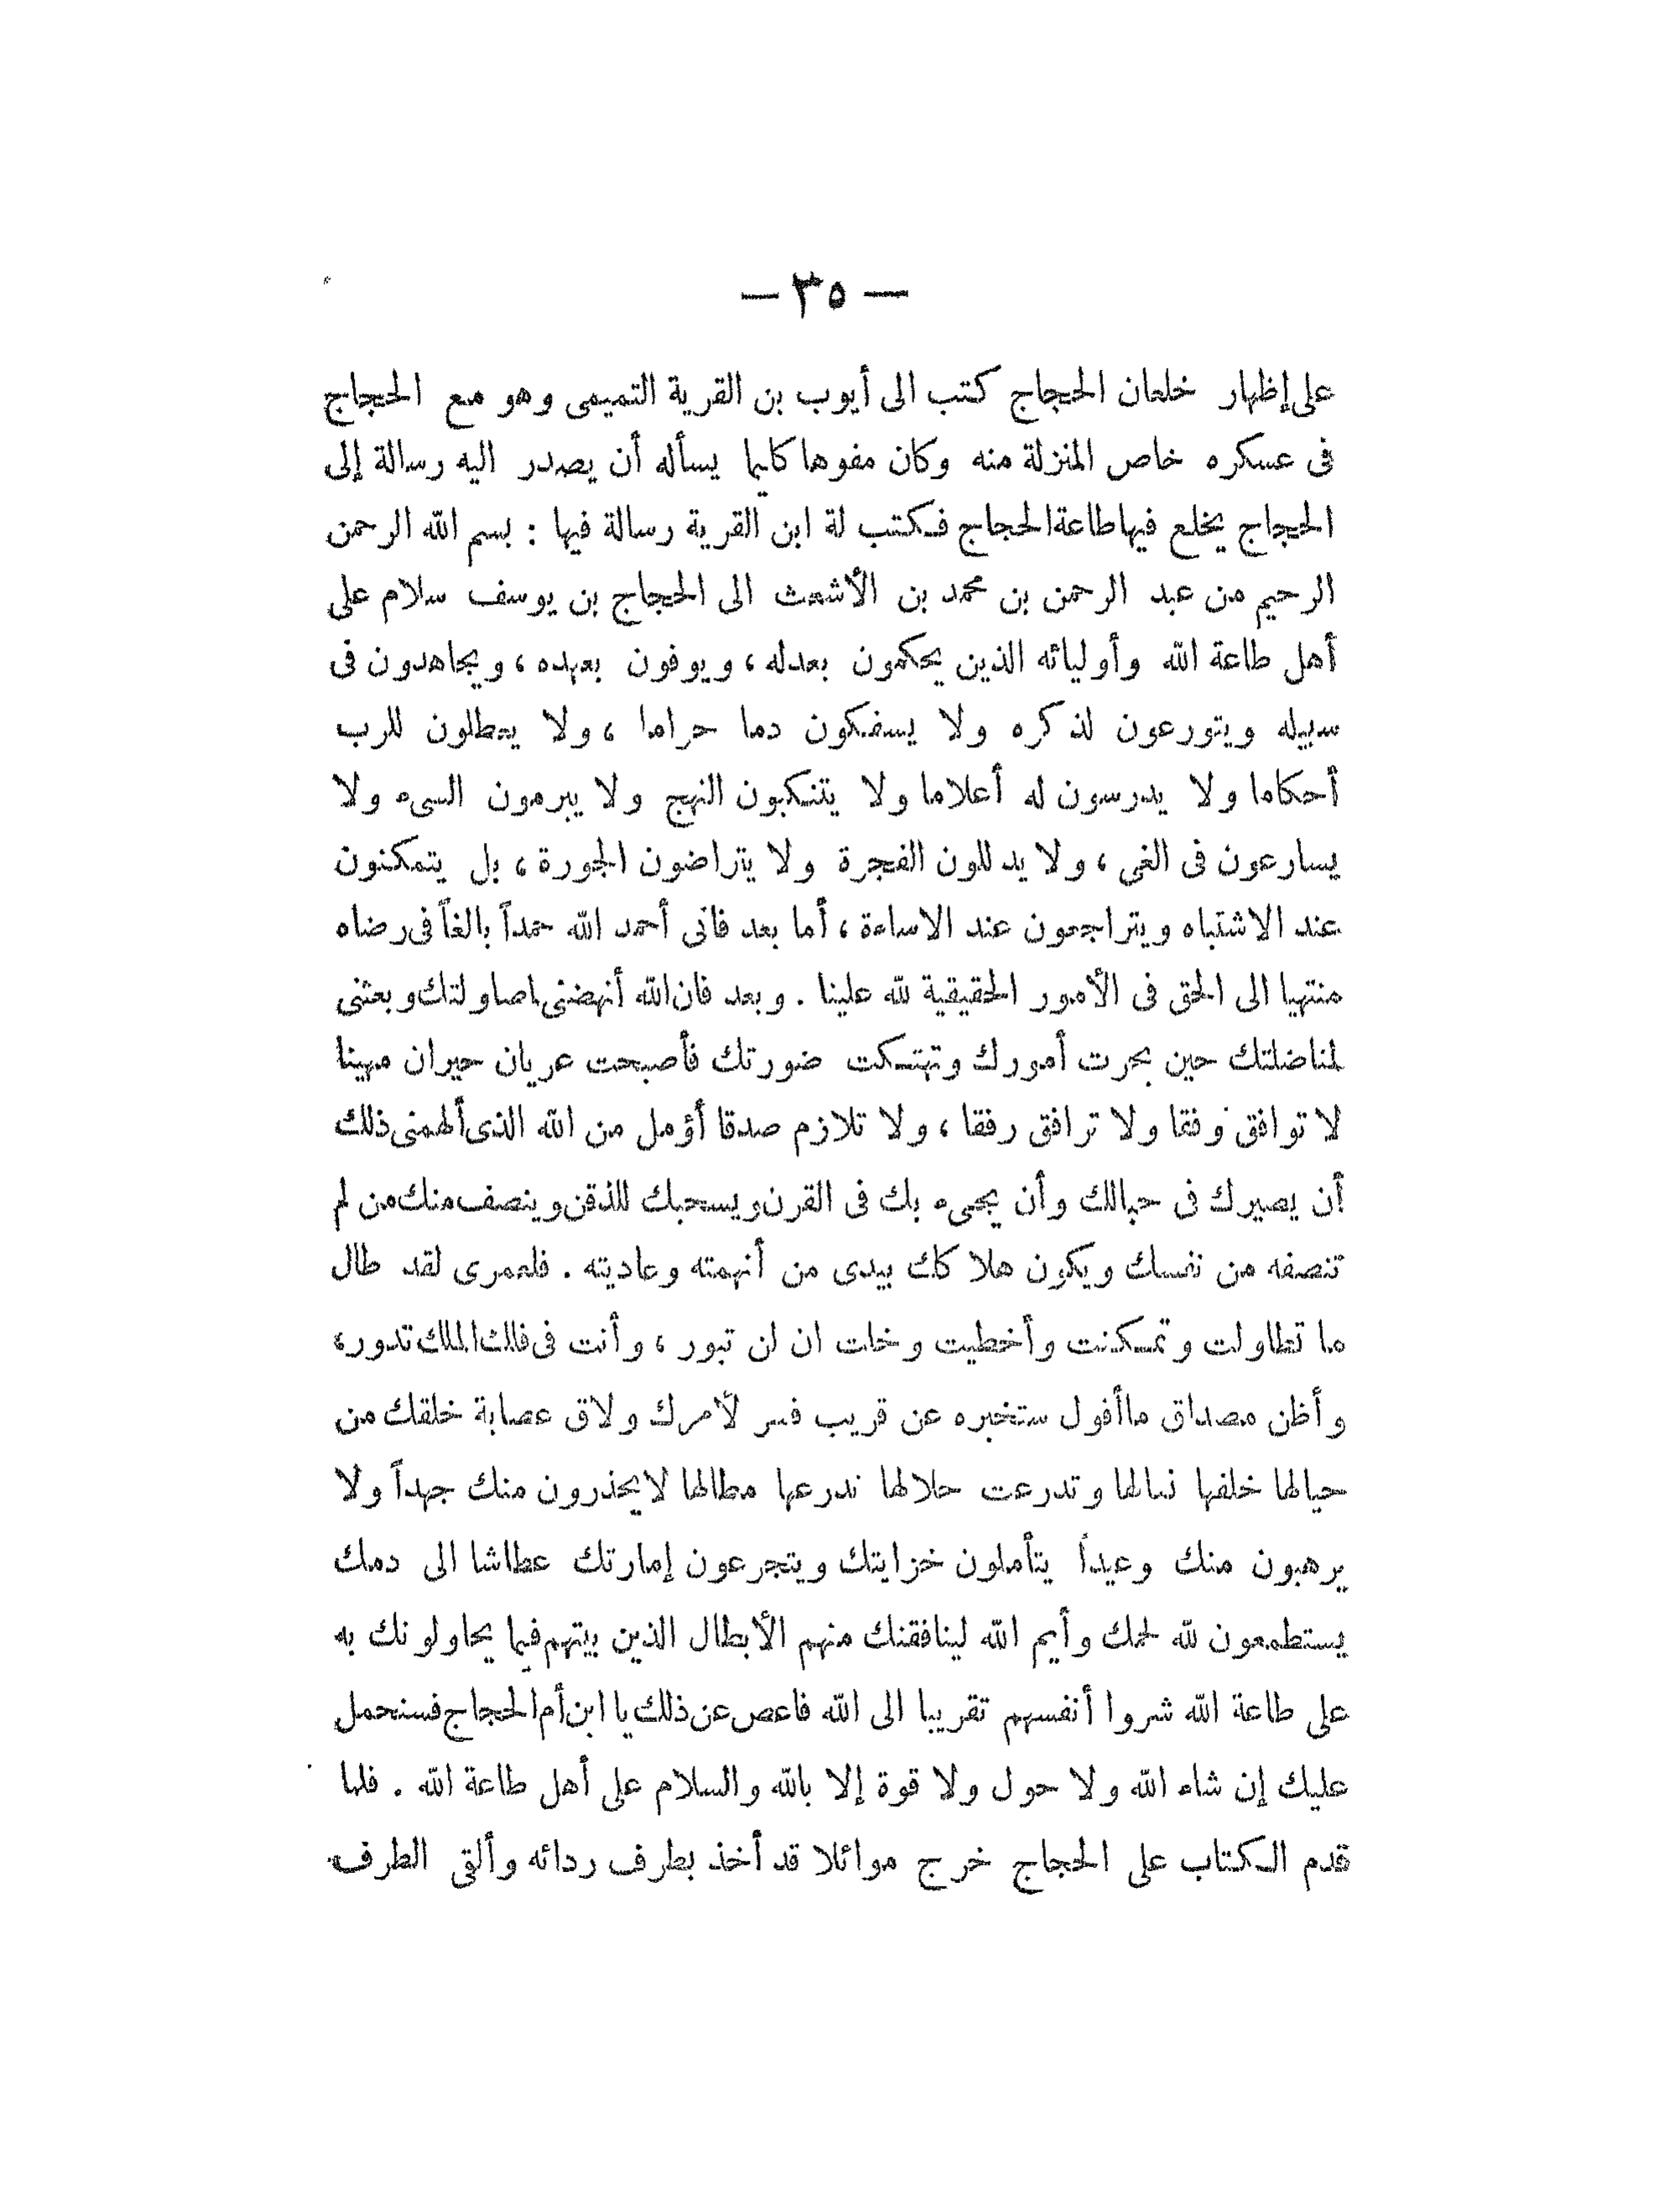 — ٣٥ —
على إظهار خلعان الحجاج كتب الى أيوب بن القرية التميمى وهو مع الحجاج
فى عسكره خاص المنزلة منه وكان مفوها كليما يسأله أن يصدر اليه رسالة إلى
الحجاج يخلع فيها طاعة الحجاج فكتب لة ابن القرية رسالة فيها : بسم الله الرحمن
الرحيم من عبد الرحمن بن محمد بن الأشعث الى الحجاج بن يوسف سلام على
أهل طاعة الله وأوليائه الذين يحكمون بعدله ، ويوفون بعهده ، ويجاهدون فى
سبيله ويتورعون لذكره ولا يسفكون دما حراما ، ولا يعطلون للرب
أحكاما ولا يدرسون له أعلاما ولا يتنكبون النهج ولا يبرمون السىء ولا
يسارعون فى الغى ، ولا يدللون الفجرة ولا يتراضون الجورة ، بل يتمكنون
عند الاشتباه ويتراجعون عند الاساءة ، أما بعد فانى أحمد الله حمداً بالغاً فى رضاه
منتهيا الى الحق فى الأمور الحقيقية لله علينا . وبعد فان الله أنهضنى لمصاولتك وبعثنى
لمناضلتك حين بحرت أمورك وتهتكت ضورتك فأصبحت عريان حيران مهينا
لا توافق وفقا ولا ترافق رفقا ، ولا تلازم صدقا أؤمل من الله الذى ألهمنى ذلك
أن يصيرك فى حبالك وأن يجىء بك فى القرن ويسحبك للذقن وينصف منك من لم
تنصفه من نفسك ويكون هلاكك بيدى من أنهمته وعاديته . فلعمرى لقد طال
ما تطاولت وتمكنت وأخطيت وخلت ان لن تبور ، وأنت فى فلك الملك تدور ،
وأظن مصداق ما أقول ستخبره عن قريب فسر لأمرك ولاق عصابة خلقك من
حبالها خلفها نبالها وتدرعت حلالها ندرعها مطالها لا يحذرون منك جهداً ولا
يرهبون منك وعيداً يتأملون خزايتك ويتجرعون إمارتك عطاشا الى دمك
يستطمعون لله لحمك وأيم الله لينافقنك منهم الأبطال الذين بيتهم فيما يحاولونك به
على طاعة الله شروا أنفسهم تقريبا الى الله فاعص عن ذلك يا ابن أم الحجاج فسنحمل
عليك إن شاء الله ولا حول ولا قوة إلا بالله والسلام على أهل طاعة الله . فلما
قدم الكتاب على الحجاج خرج موائلا قد أخذ بطرف ردائه وألقى الطرف